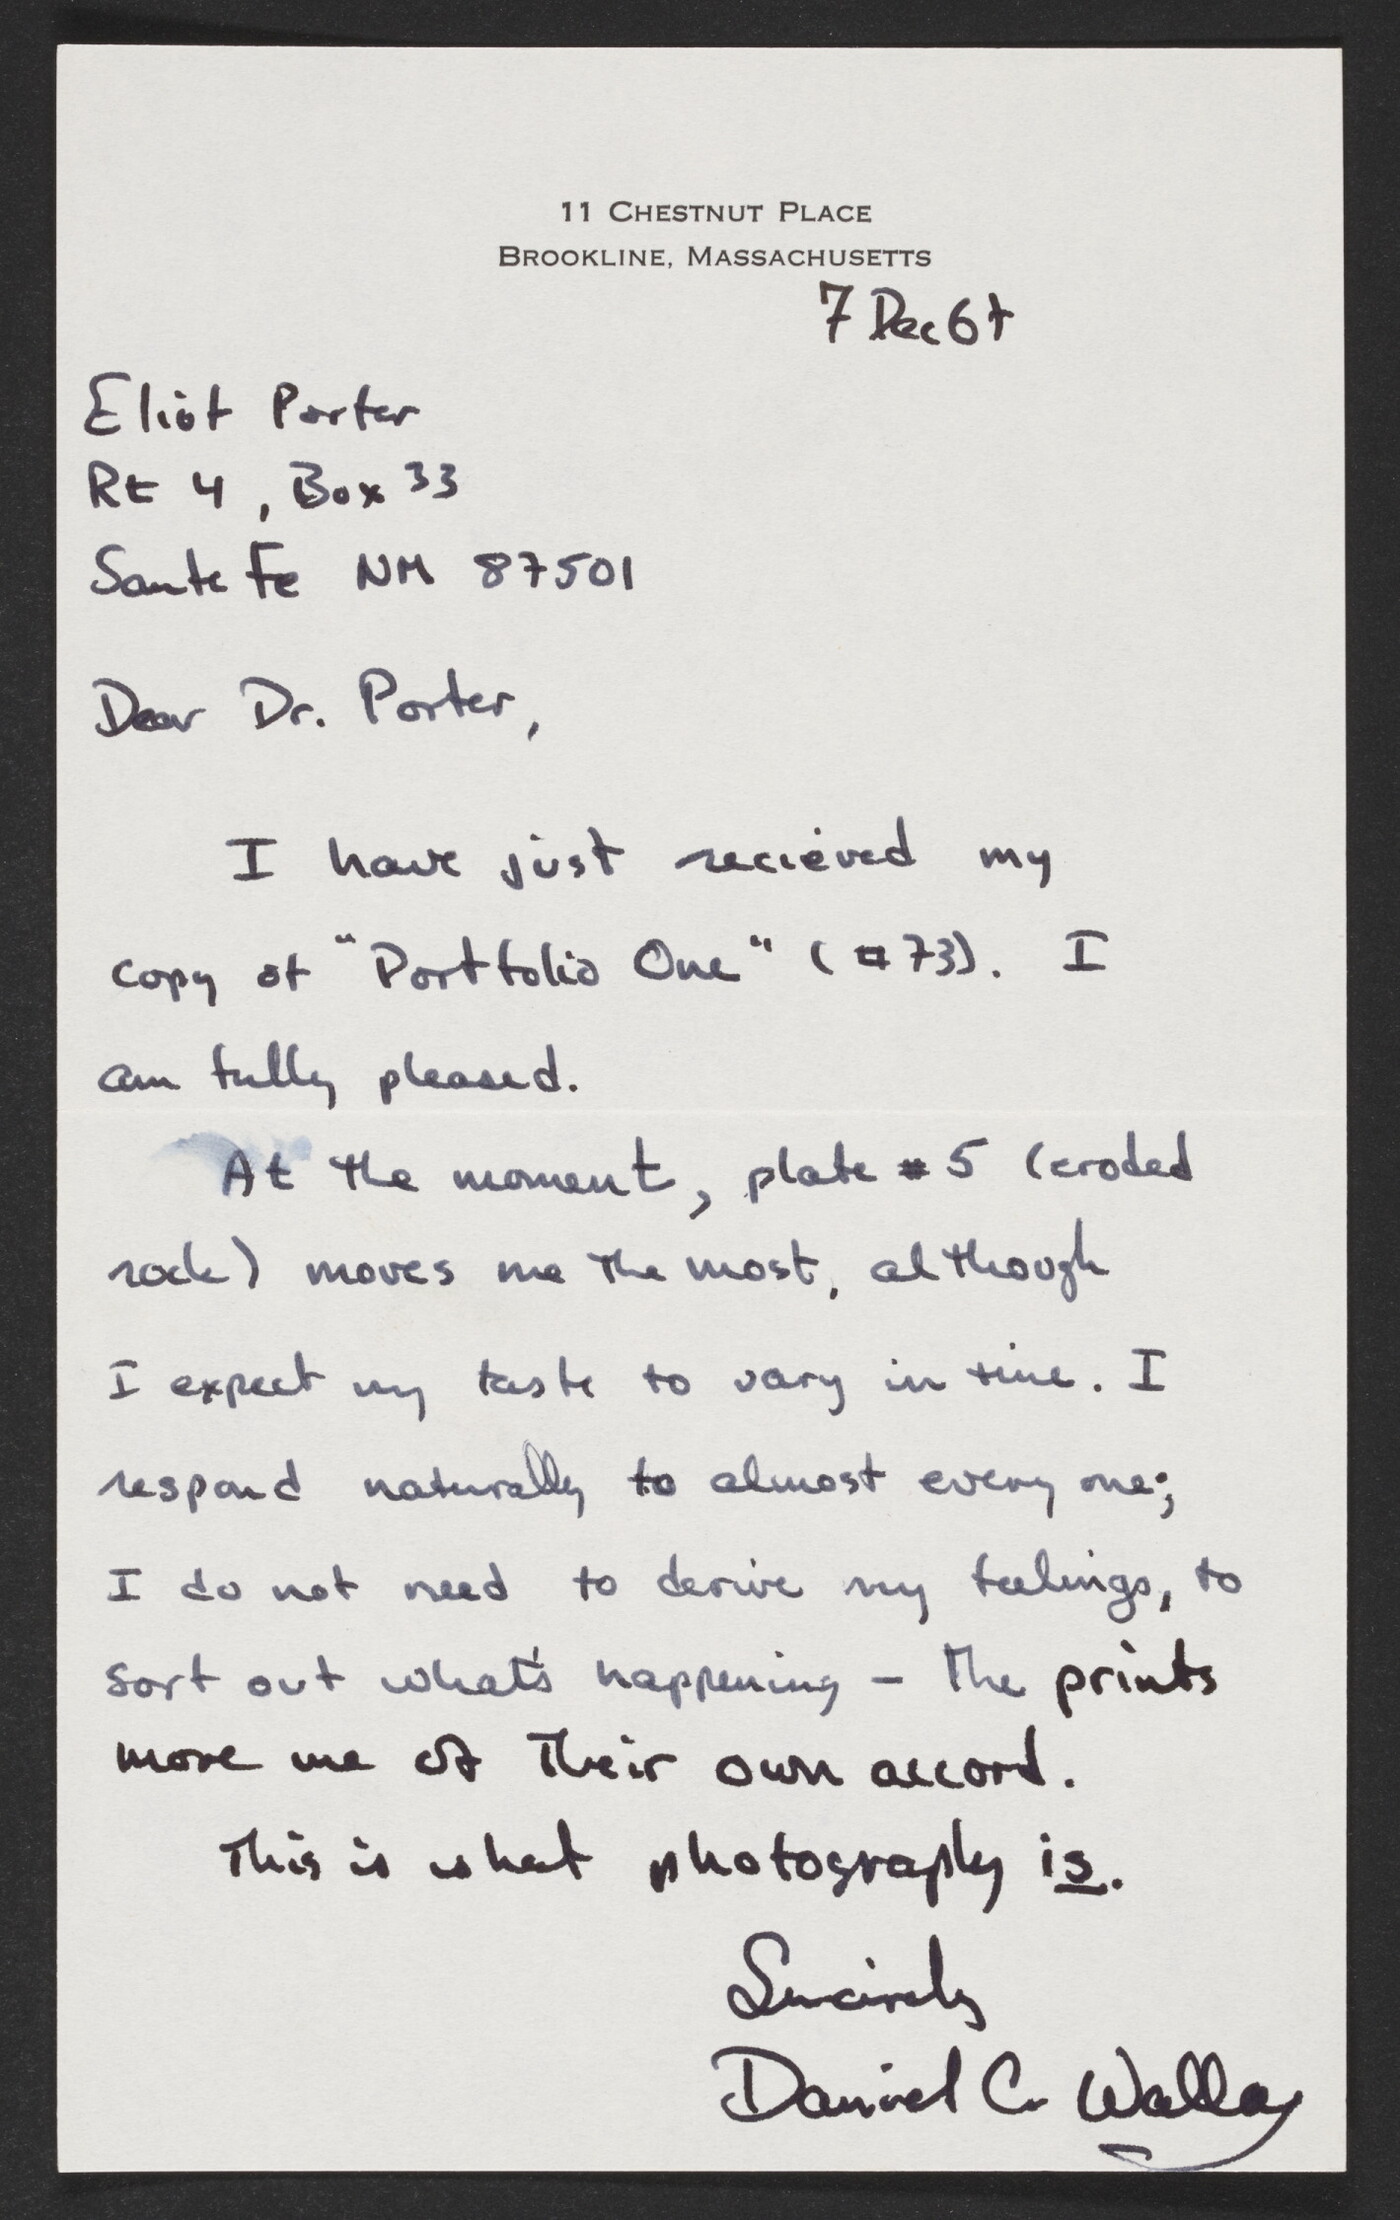 11 CHESTNUT PLACE
BROOKLINE, MASSACHUSETTS
7 Dec 64
Eliot Porter
Rt 4, Box 33
Sante Fe NM 87501
Dear Dr. Porter,
I have just recieved my
copy of "Portfolio One" (#73). I
am fully pleased.
At the moment, plate #5 (eroded
rock) moves me the most, although
I expect my taste to vary in time. I
respond naturally to almost every one;
I do not need to derive my feelings, to
sort out what's happening – the prints
move me of their own accord.
This is what photography is.
Sincirely
Daniel C.